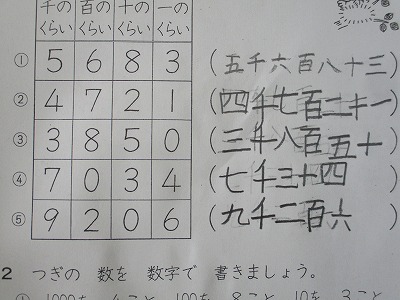 千の 百の 十の 一の
くらい くらい くらい くらい
① 5 6 8 3 (五千六百八十三)
② 4 7 2 1 (四千七百二十一)
③ 3 8 5 0 (三千八百五十)
④ 7 0 3 4 (七千三十四)
⑤ 9 2 0 6 (九千二百六)
2 つぎの 数を 数字で 書きましょう。